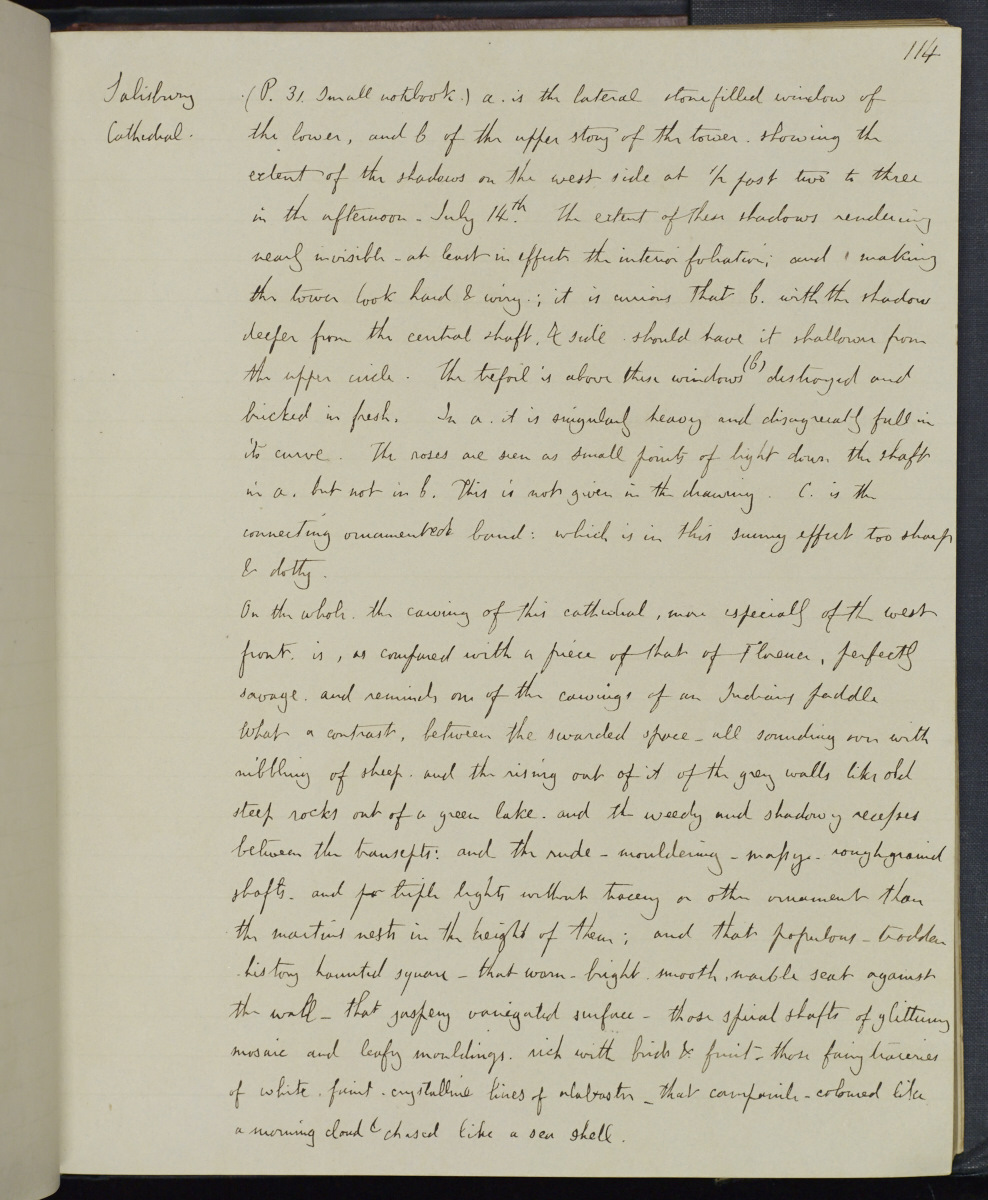 114
Salisbury
Cathedral.
(P. 31. Small notebook.) a. is the lateral stonefilled window of
the lower, and b of the upper story of the tower. showing the
extent of the shadows on the west side at 1/2 past two to three
in the afternoon - July 14th. The extent of these shadows rendering
nearly invisible - at least in effect the interior foliation; and making
the tower look hard & wiry.; it is curious that b. with the shadow
deeper from the central shaft, & side should have it shallower from
the upper circle. The trefoil is above these windows (b) destroyed and
bricked in fresh. In a. it is singularly heavy and disagreeably full in
its curve. The roses are seen as small points of light down the shaft
in a. but not in b. This is not given in the drawing. C. is the
connecting ornamented band: which is in this sunny effect too sharp
& dotty.
On the whole. the carving of this cathedral, more especially of the west
front. is, as compared with a piece of that of Florence, perfectly
savage. and reminds one of the carvings of an Indians paddle
What a contrast, between the swarded space - all sounding over with
nibbling of sheep. and the rising out of it of the grey walls like old
steep rocks out of a green lake. and the weedy and shadowy recesses
between the transepts: and the rude - mouldering - massy - roughgrained
shafts. and triple lights without tracery or other ornament than
the martins nests in the height of them; and that populous - trodden
history haunted square - that warm - bright smooth, marble seat against
the wall - that jaspery variegated surface - those spiral shafts of glittering
mosaic and leafy mouldings. rich with birds & fruit - those fairy traceries
of white. faint. crystalline lines of alabaster - that campanile - coloured like
a morning cloud & chased like a sea shell.